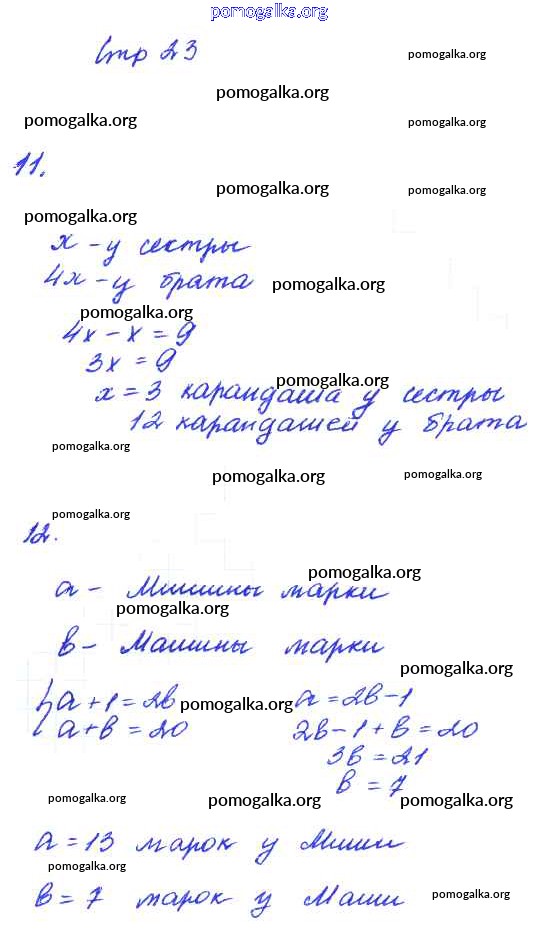 pomogalka.org
Стр 23
pomogalka.org
pomogalka.org
pomogalka.org
pomogalka.org
11.
pomogalka.org
pomogalka.org
pomogalka.org
x - у сестры
4x - у брата
pomogalka.org
pomogalka.org
4x - x = 9
3x = 9
pomogalka.org
x = 3 карандаша у сестры
12 карандашей у брата
pomogalka.org
pomogalka.org
pomogalka.org
pomogalka.org
12.
pomogalka.org
a - Мишины марки
pomogalka.org
b - Машины марки
pomogalka.org
{ a + 1 = 2b pomogalka.org a = 2b - 1
a + b = 20 2b - 1 + b = 20
3b = 21
b = 7
pomogalka.org pomogalka.org pomogalka.org
a = 13 марок у Миши
pomogalka.org
b = 7 марок у Маши
pomogalka.org